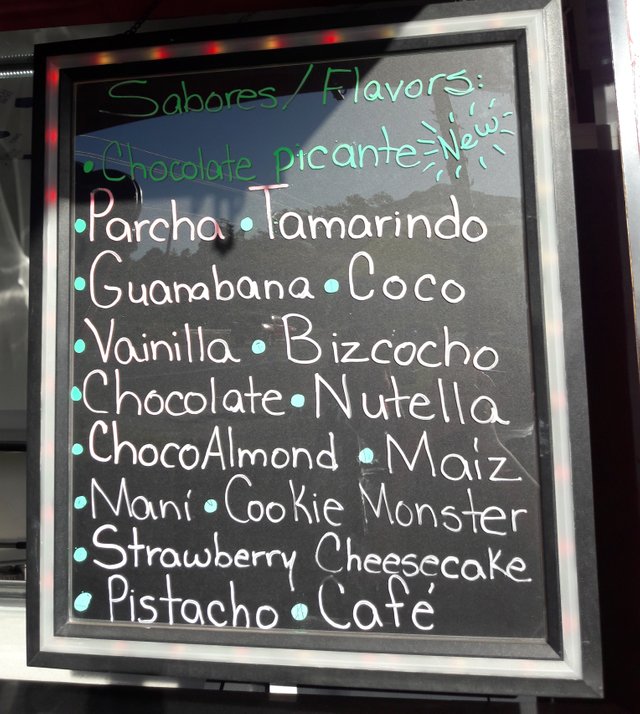 Sabores/Flavors:
• Chocolate picante New
• Parcha • Tamarindo
• Guanabana • Coco
• Vainilla • Bizcocho
• Chocolate • Nutella
• ChocoAlmond • Maíz
• Maní • Cookie Monster
• Strawberry Cheesecake
• Pistacho • Café